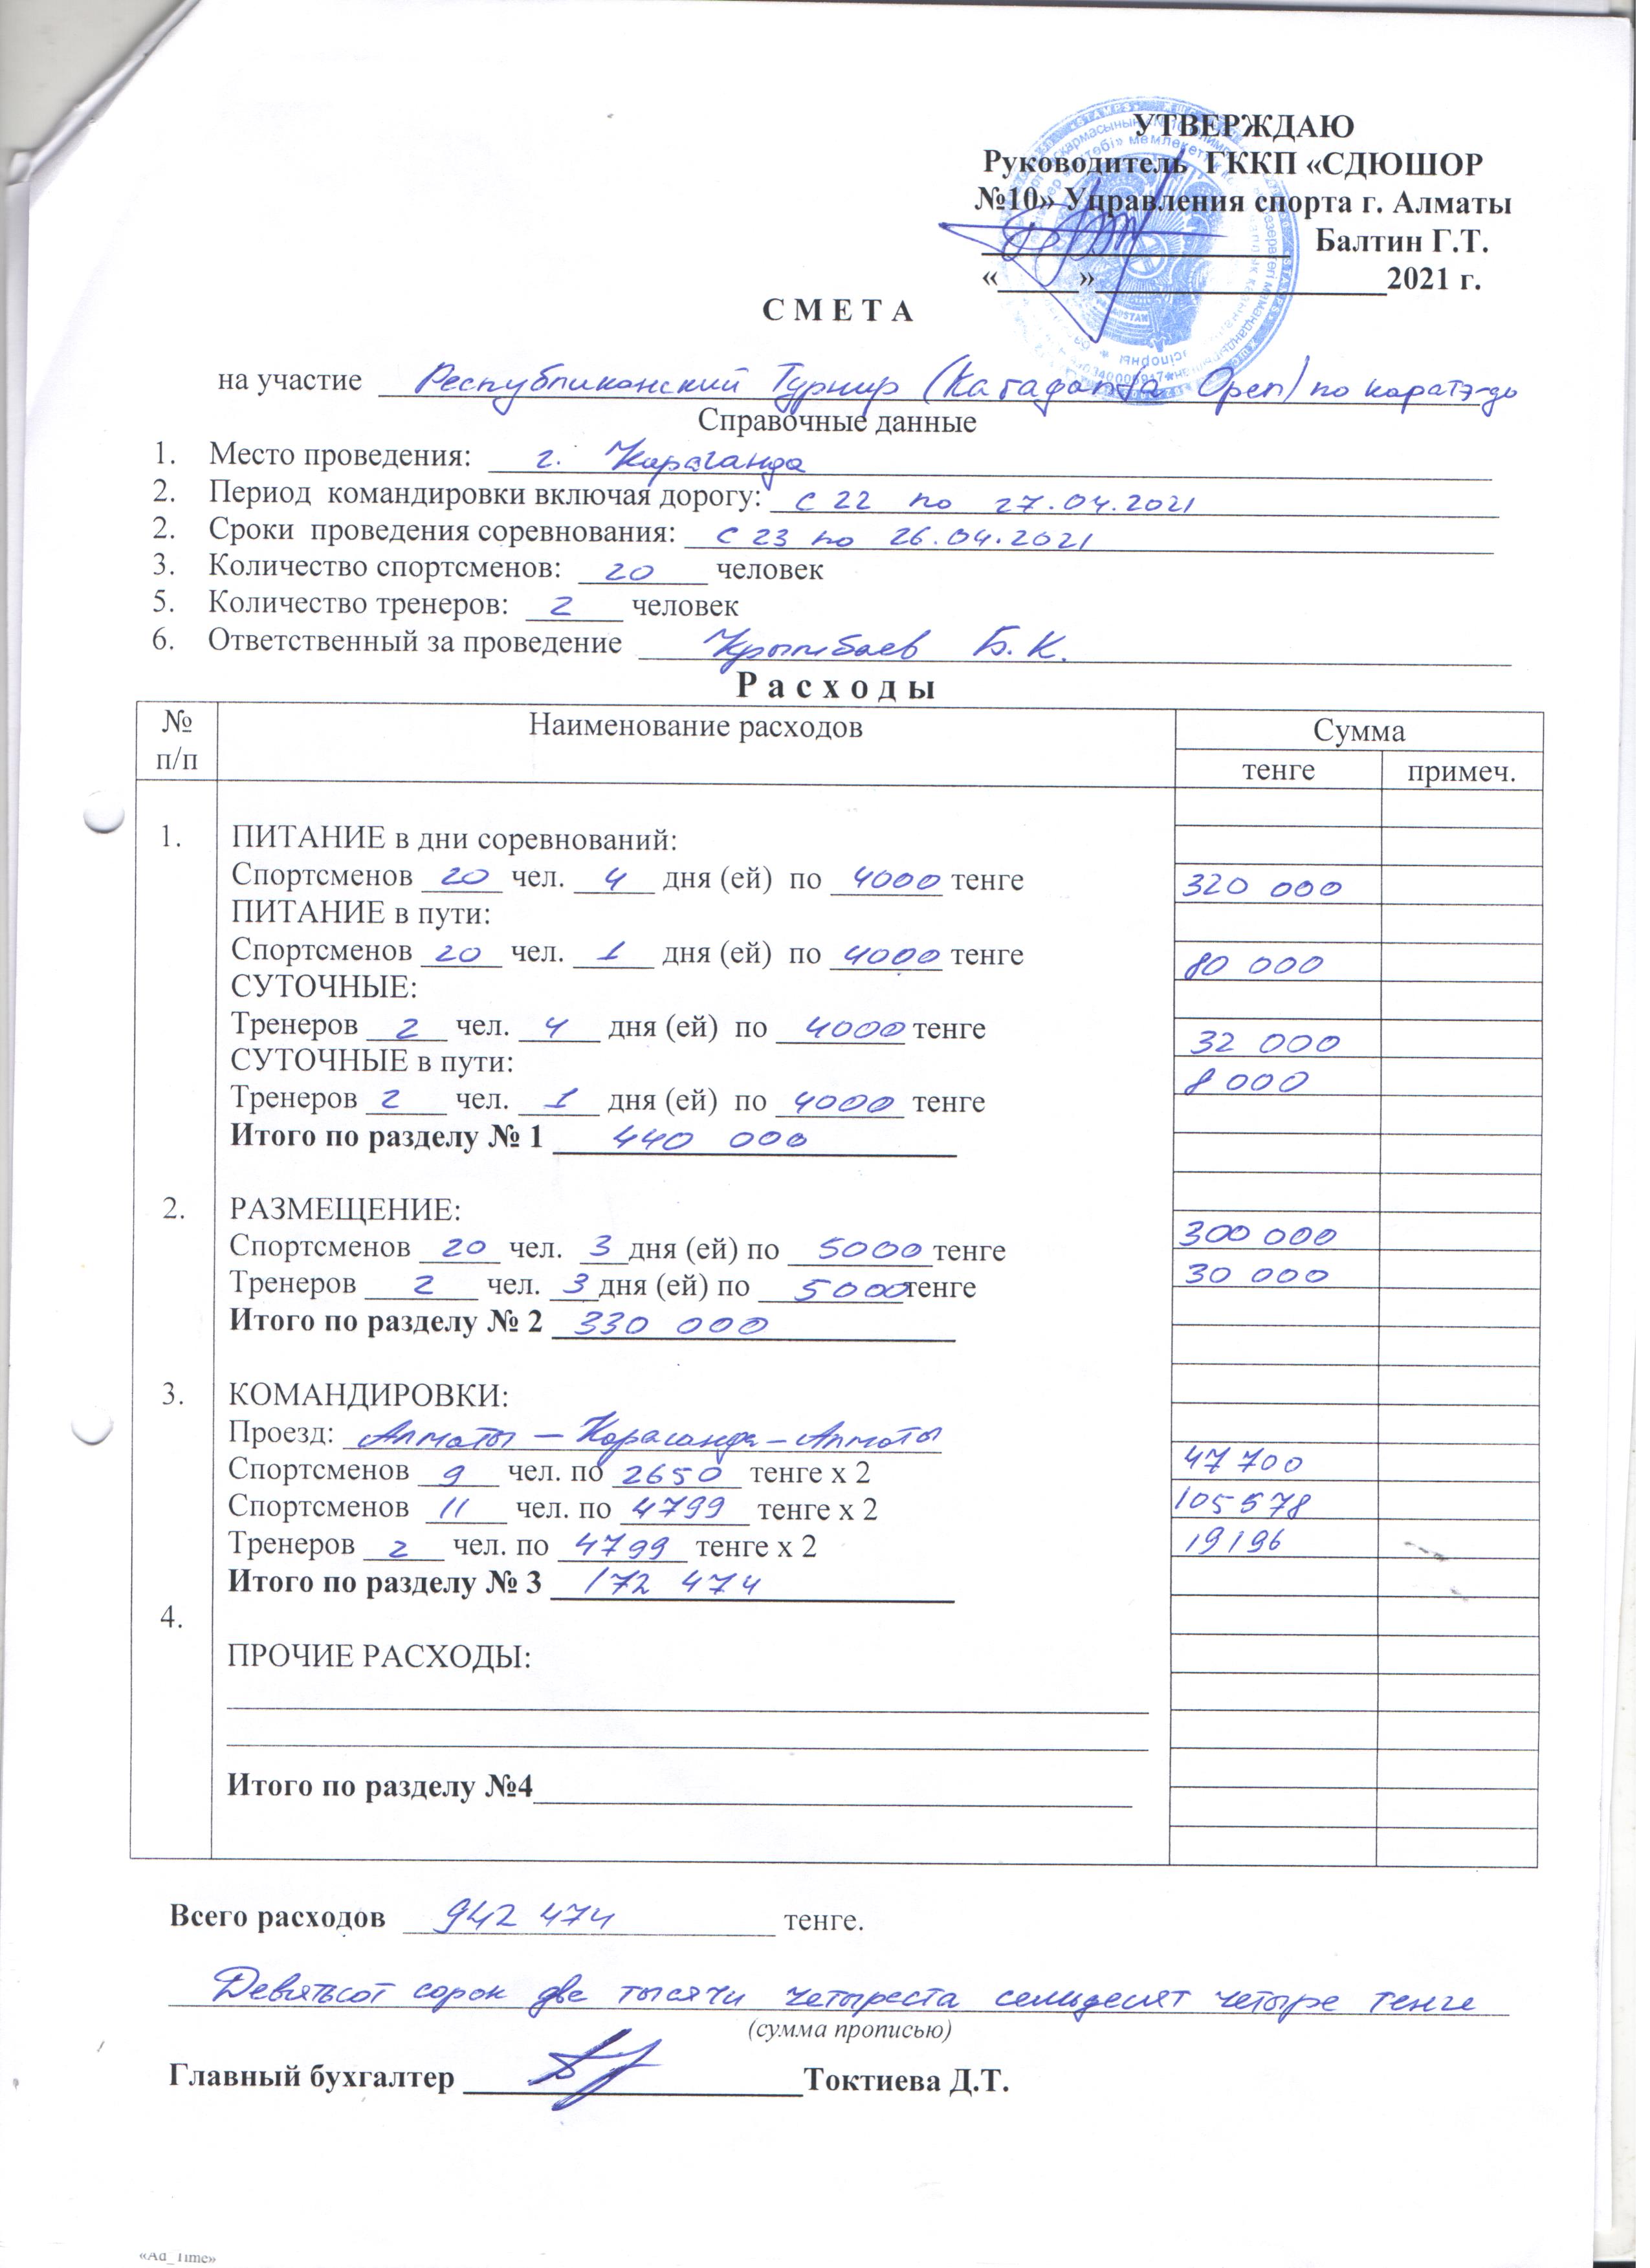 УТВЕРЖДАЮ
Руководитель ГККП «СДЮШОР
№10» Управления спорта г. Алматы
Балтин Г.Т.
«_____»__________________2021 г.
С М Е Т А
на участие Республиканский Турнир (Karaganda Open) по каратэ-до
Справочные данные
1. Место проведения: г. Караганда
2. Период командировки включая дорогу: с 22 по 27.04.2021
2. Сроки проведения соревнования: с 23 по 26.04.2021
3. Количество спортсменов: 20 человек
5. Количество тренеров: 2 человек
6. Ответственный за проведение Б.К.
Р а с х о д ы
№ п/п Наименование расходов Сумма
тенге примеч.
1. ПИТАНИЕ в дни соревнований:
Спортсменов 20 чел. 4 дня (ей) по 4000 тенге 320 000
ПИТАНИЕ в пути:
Спортсменов 20 чел. 1 дня (ей) по 4000 тенге 80 000
СУТОЧНЫЕ:
Тренеров 2 чел. 4 дня (ей) по 4000 тенге 32 000
СУТОЧНЫЕ в пути: 8 000
Тренеров 2 чел. 1 дня (ей) по 4000 тенге
Итого по разделу № 1 440 000
2. РАЗМЕЩЕНИЕ:
Спортсменов 20 чел. 3 дня (ей) по 5000 тенге 300 000
Тренеров 2 чел. 3 дня (ей) по 5000 тенге 30 000
Итого по разделу № 2 330 000
3. КОМАНДИРОВКИ:
Проезд: Алматы – Караганда – Алматы
Спортсменов 9 чел. по 2650 тенге х 2 47 700
Спортсменов 11 чел. по 4799 тенге х 2 105 578
Тренеров 2 чел. по 4799 тенге х 2 19196
Итого по разделу № 3 172 474
4.
ПРОЧИЕ РАСХОДЫ:
Итого по разделу №4
Всего расходов 942 474 тенге.
Девятьсот сорок две тысячи четыреста семьдесят четыре тенге
(сумма прописью)
Главный бухгалтер Токтиева Д.Т.
«Ad_Time»